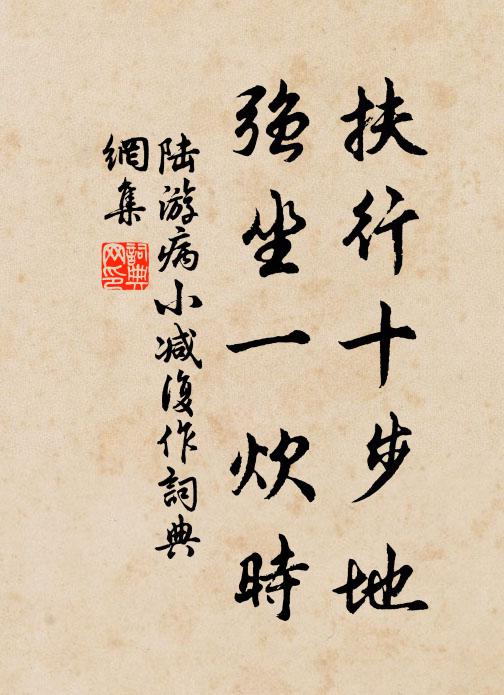 扶行十步地
強坐一炊時
陆游病小减復作詞典
網集
詞典
网印